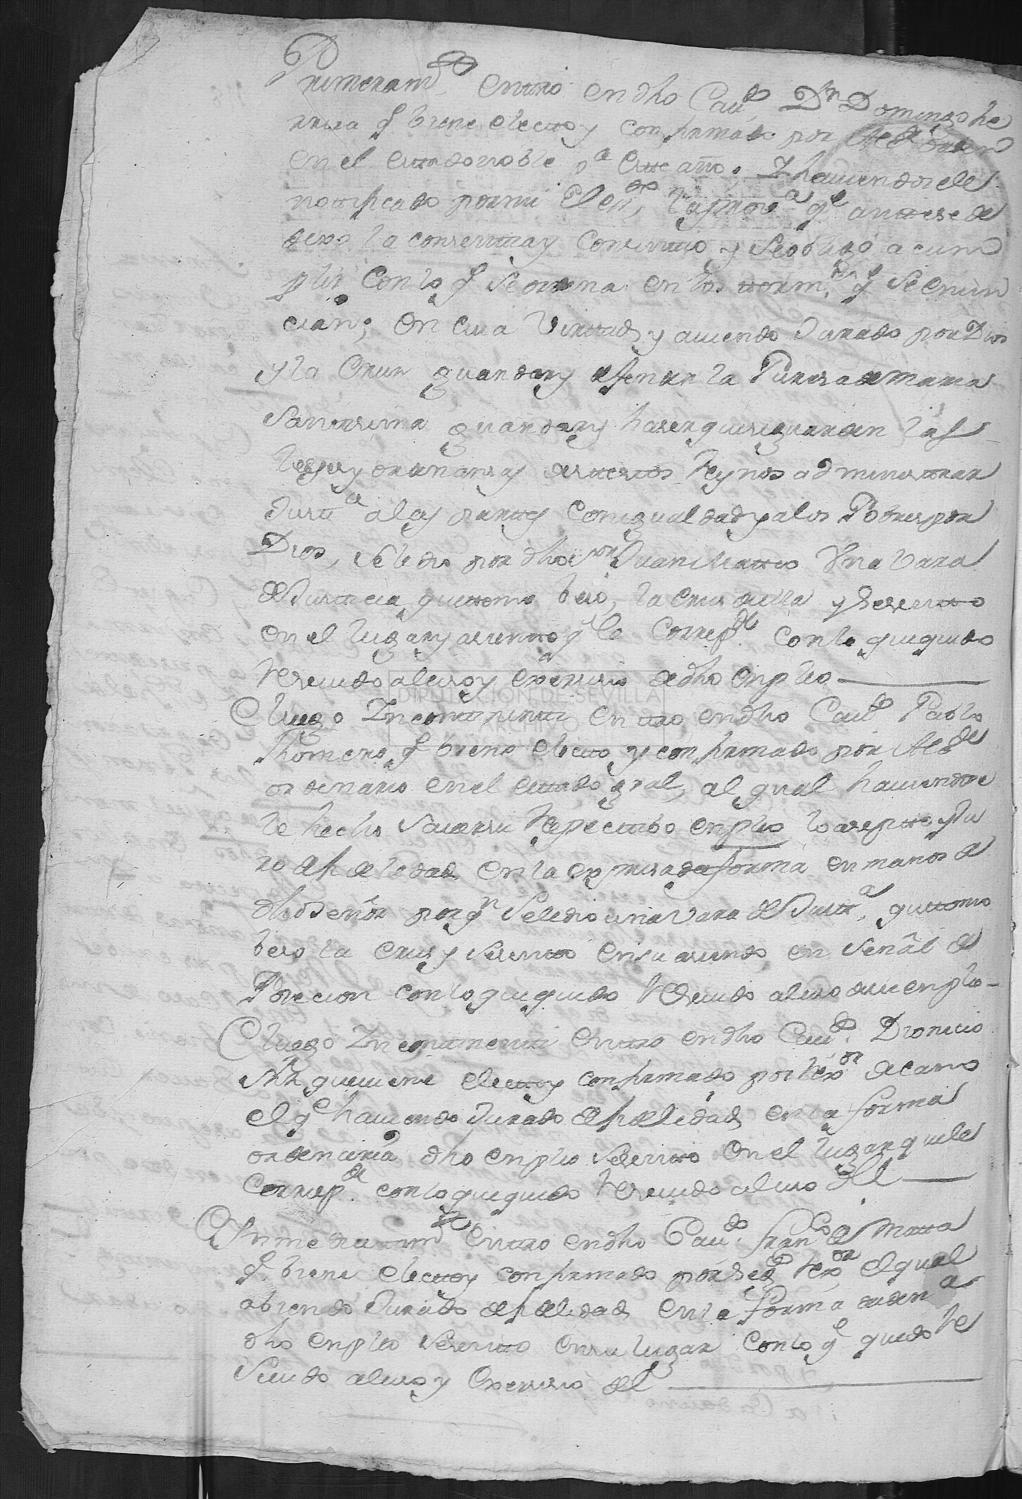 Primeram.te entro en dho Cau.do D.n Domingo he
rrera q.e biene electo y confirmado por Alc.de orden.o
en el estado noble p.a este año, y haviendosele
notificado por mi el es.no la prov.a q.e antesede
dixo la consentia y consintio y se obligo a cum
plir con lo q.e se ordena en los term.s q.e se enun
cian; en cuia virtud, y aviendo Jurado por Dios
y la Cruz guardar y defender la Puresa de maria
santissima guardar y haser que se guarden las
leyes y ordenansas de estos Reynos administrar
Justi.a a las partes con igualdad y a los Pobres por
Dios, se le dio por dho s.or Juan Matteo Una Vara
de Justicia que tomo beso, la Crus de ella y se sento
en el lugar y asiento q.e le corresp.de con lo que quedo
Resevido al uso y exersisio de dho enpleo
Luego Yncontinenti entro en dho Cau.do Pablo
Romero q.e biene electo y confirmado por Alc.de
ordenario en el estado g.ral, al qual haviendose
le hecho saver su Respectibo enpleo lo asepto y Ju
ro de fidelidad en la expresada forma en manos de
dho Señor por q.n se le dio una Vara de Just.a que tomo
beso la crus y se sento en su asiento en Señal de
Posecion con lo que quedo Resevido al uso de su enpleo
Luego Yncontinenti entro en dho Cau.do Dionicio
que viene electo y confirmado por Rex.or decano
el q.e haviendo Jurado de fidelidad en la forma
ordenaria dho enpleo se sento en el lugar que le
corresp.de con lo que quedo Resevido al uso del
Ynmediatam.te entro en dho Cau.do Fran.co de Matta
q.e biene electo y confirmado por seg.do Rex.or el qual
abiendo Jurado de fidelidad en la forma ordena.a
dho enpleo se sento en su lugar con lo q.e quedo Re
sevido al uso y exersisio del
DIPUTACION DE SEVILLA
ARCHIVO